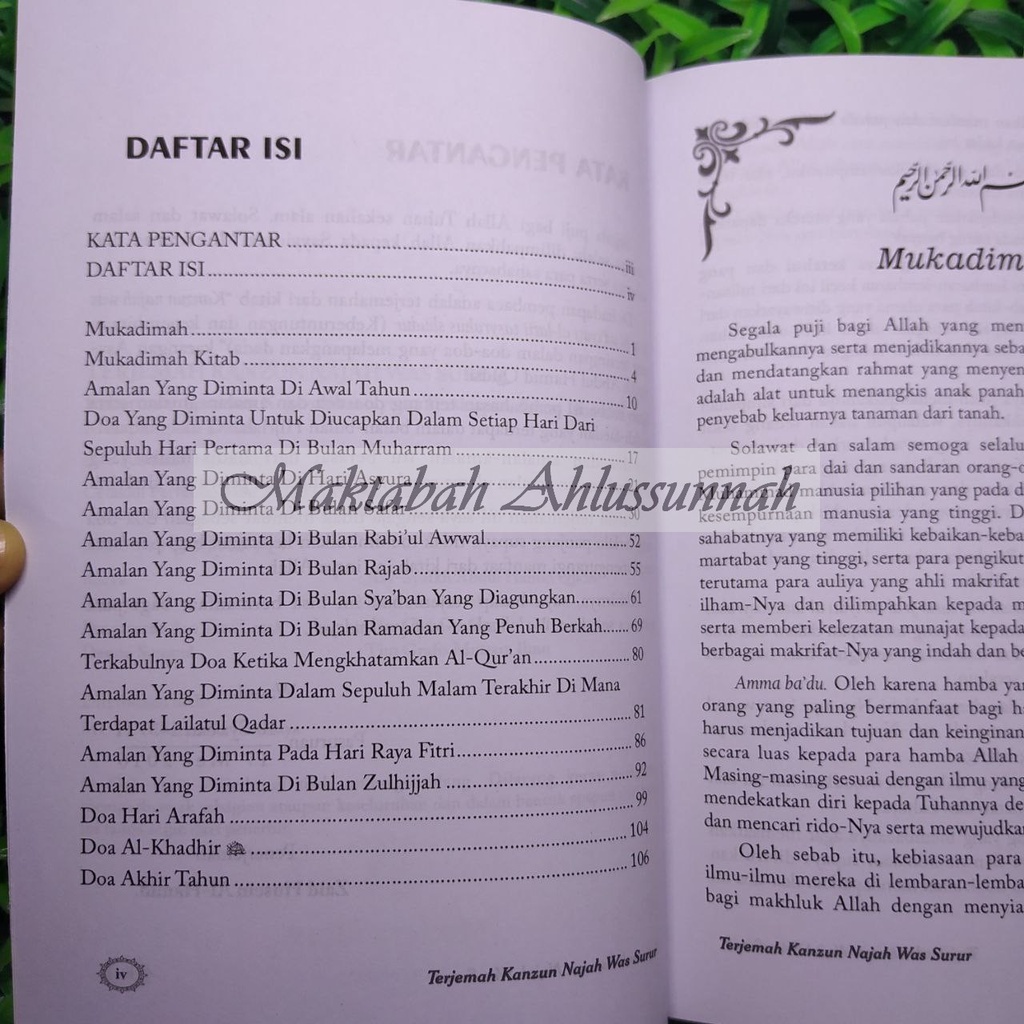 DAFTAR ISI
KATA PENGANTAR ... iii
DAFTAR ISI ... iv
Mukadimah ... 1
Mukadimah Kitab ... 4
Amalan Yang Diminta Di Awal Tahun ... 10
Doa Yang Diminta Untuk Diucapkan Dalam Setiap Hari Dari
Sepuluh Hari Pertama Di Bulan Muharram ... 17
Amalan Yang Diminta Di Hari Asyura ... 21
Amalan Yang Diminta Di Bulan Safar ... 30
Amalan Yang Diminta Di Bulan Rabi'ul Awwal ... 52
Amalan Yang Diminta Di Bulan Rajab ... 55
Amalan Yang Diminta Di Bulan Sya'ban Yang Diagungkan ... 61
Amalan Yang Diminta Di Bulan Ramadan Yang Penuh Berkah ... 69
Terkabulnya Doa Ketika Mengkhatamkan Al-Qur'an ... 80
Amalan Yang Diminta Dalam Sepuluh Malam Terakhir Di Mana
Terdapat Lailatul Qadar ... 81
Amalan Yang Diminta Pada Hari Raya Fitri ... 86
Amalan Yang Diminta Di Bulan Zulhijjah ... 92
Doa Hari Arafah ... 99
Doa Al-Khadhir ... 104
Doa Akhir Tahun ... 106
iv
Terjemah Kanzun Najah Was Surur
Maktabah Ahlussunnah
الله الرحمن الرحيم
Mukadim
Segala puji bagi Allah yang men
mengabulkannya serta menjadikannya seba
dan mendatangkan rahmat yang menyen
adalah alat untuk menangkis anak panah
penyebab keluarnya tanaman dari tanah.
Solawat dan salam semoga selalu
pemimpin para dai dan sandaran orang-o
Muhammad manusia pilihan yang pada d
kesempurnaan manusia yang tinggi. D
sahabatnya yang memiliki kebaikan-keba
martabat yang tinggi, serta para pengikut
terutama para auliya yang ahli makrifat
ilham-Nya dan dilimpahkan kepada m
serta memberi kelezatan munajat kepada
berbagai makrifat-Nya yang indah dan be
Amma ba'du. Oleh karena hamba yan
orang yang paling bermanfaat bagi h
harus menjadikan tujuan dan keinginan
secara luas kepada para hamba Allah
Masing-masing sesuai dengan ilmu yang
mendekatkan diri kepada Tuhannya de
dan mencari rido-Nya serta mewujudkan
Oleh sebab itu, kebiasaan para
ilmu-ilmu mereka di lembaran-lemba
bagi makhluk Allah dengan menyia
Terjemah Kanzun Najah Was Surur